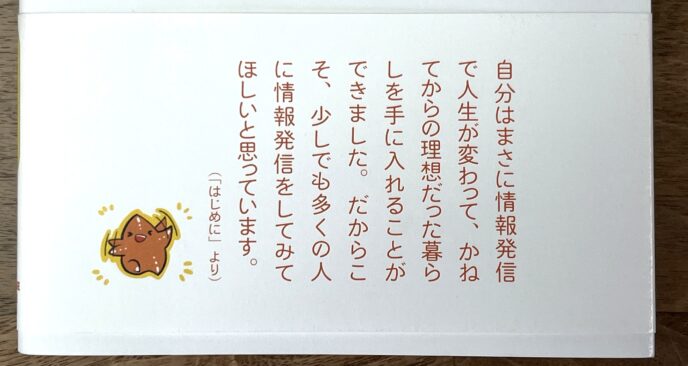 自分はまさに情報発信
で人生が変わって、かね
てからの理想だった暮ら
しを手に入れることが
できました。だからこ
そ、少しでも多くの人
に情報発信をしてみて
ほしいと思っています。
(「はじめに」より)